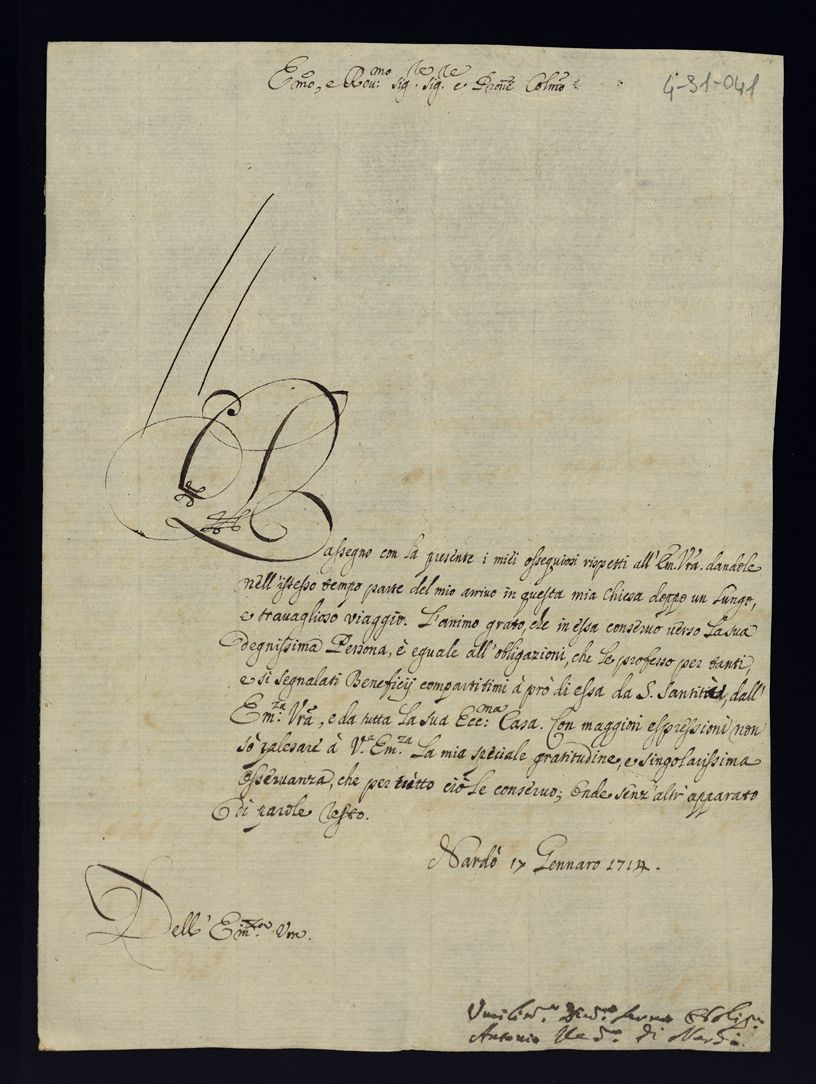 Em̃o, e Reu:mo Sig.re Sig.re e Pron̄e Colm̃o
4-31-041
Rassegno con la presente i miei osseguiosi rispetti all'Em. Vrã. dandole
nell'istesso tempo parte del mio arriuo in questa mia Chiesa doppo un lungo,
e trauaglioso viaggio. L'animo grato, che in essa conseruo uerso la sua
degnissima Persona, è eguale all'obligazioni, che le professo per tanti,
e si segnalati Beneficij compartitimi à prò di essa da S. Santità, dall'
Em:za Vrã, e da tutta la sua Ecc:ma Casa. Con maggiori espressioni non
sò palesare à V.a Em.za la mia speciale gratitudine, e singolarissima
osseruanza, che per tutto ciò le conseruo; onde senz'altr'apparato
di parole resto.
Nardò 17 Gennaro 1714.
Dell'Em:za Vra.
Umiliss.o Diuot.o Seruo Obligm.o
Antonio Ves.o di Nardò